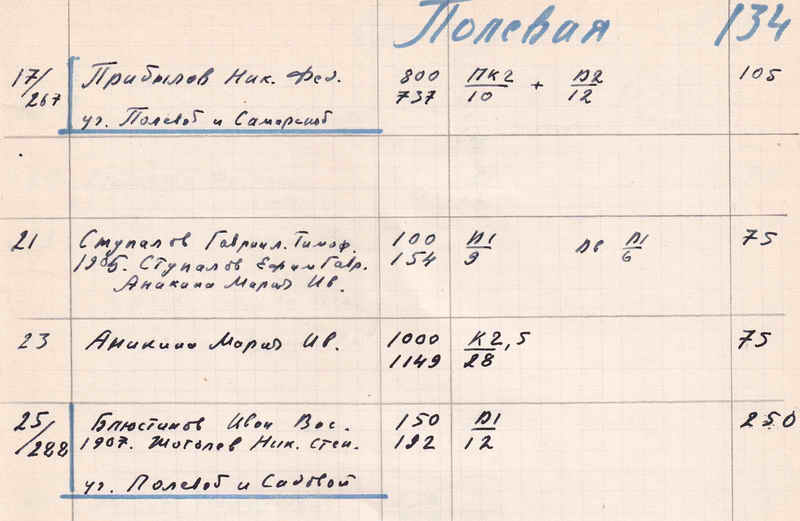 Полевая 134
17/267 Прибылов Ник. Фед. 800 737 ПК2/10 + Д2/12 105
уг. Полевой и Самарской
21 Ступалов Гавриил. Тимоф. 100 Д1 Д1 75
1905. Ступалов Ефим Гавр. 154 9 6
Аникина Мария Ив.
23 Аникина Мария Ив. 1000 К2,5 75
1149 28
25/288 Блюстинов Иван Вас. 150 Д1 250
1907. Жоголев Ник. Степ. 192 12
уг. Полевой и Садовой